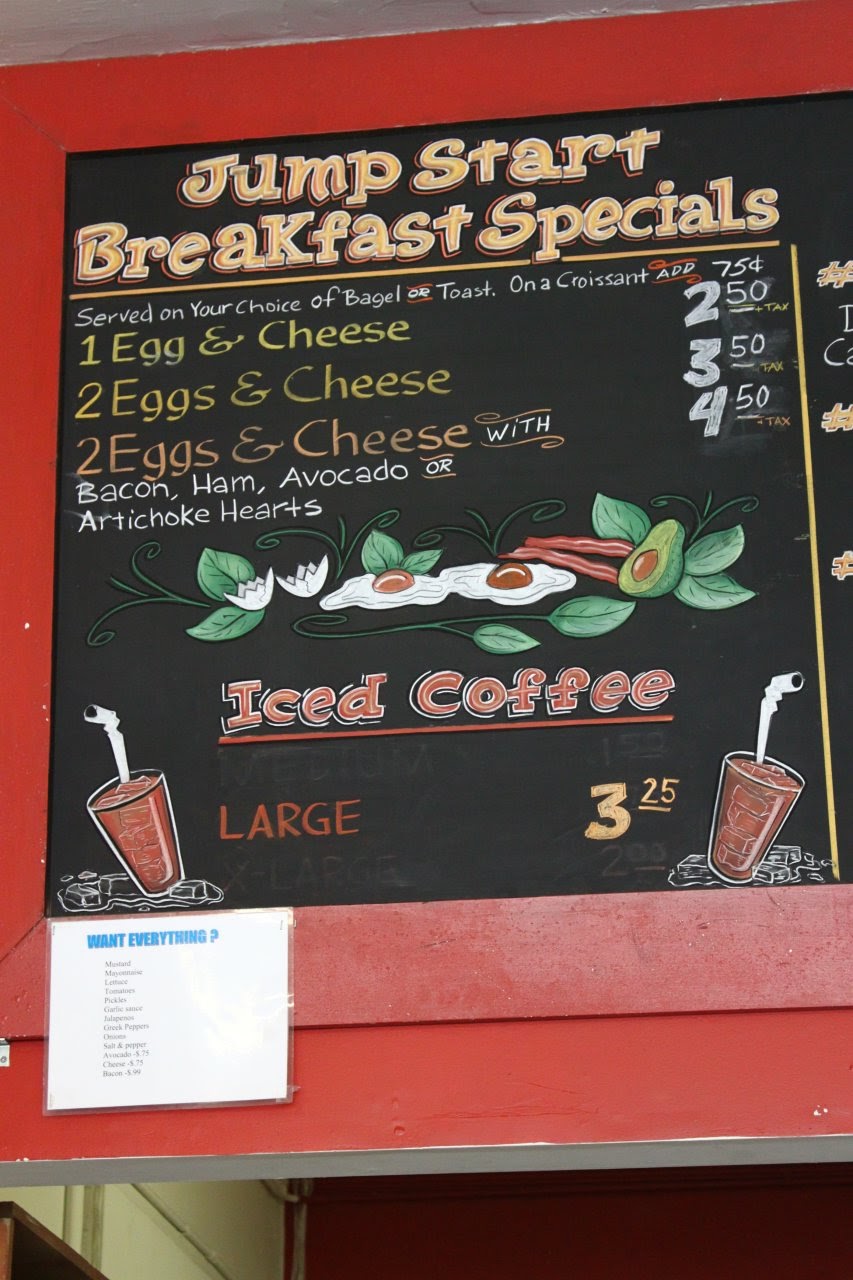 Jump Start
Breakfast Specials
Served on Your Choice of Bagel OR Toast. On a Croissant ADD 75¢
1 Egg & Cheese 2 50 + TAX
2 Eggs & Cheese 3 50 + TAX
2 Eggs & Cheese WITH 4 50 + TAX
Bacon, Ham, Avocado OR
Artichoke Hearts
Iced Coffee
MEDIUM 1 50
LARGE 3 25
X-LARGE 2 00
WANT EVERYTHING ?
Mustard
Mayonnaise
Lettuce
Tomatoes
Pickles
Garlic sauce
Jalapenos
Greek Peppers
Onions
Salt & pepper
Avocado -$.75
Cheese -$.75
Bacon -$.99
#
D
Ca
#
#